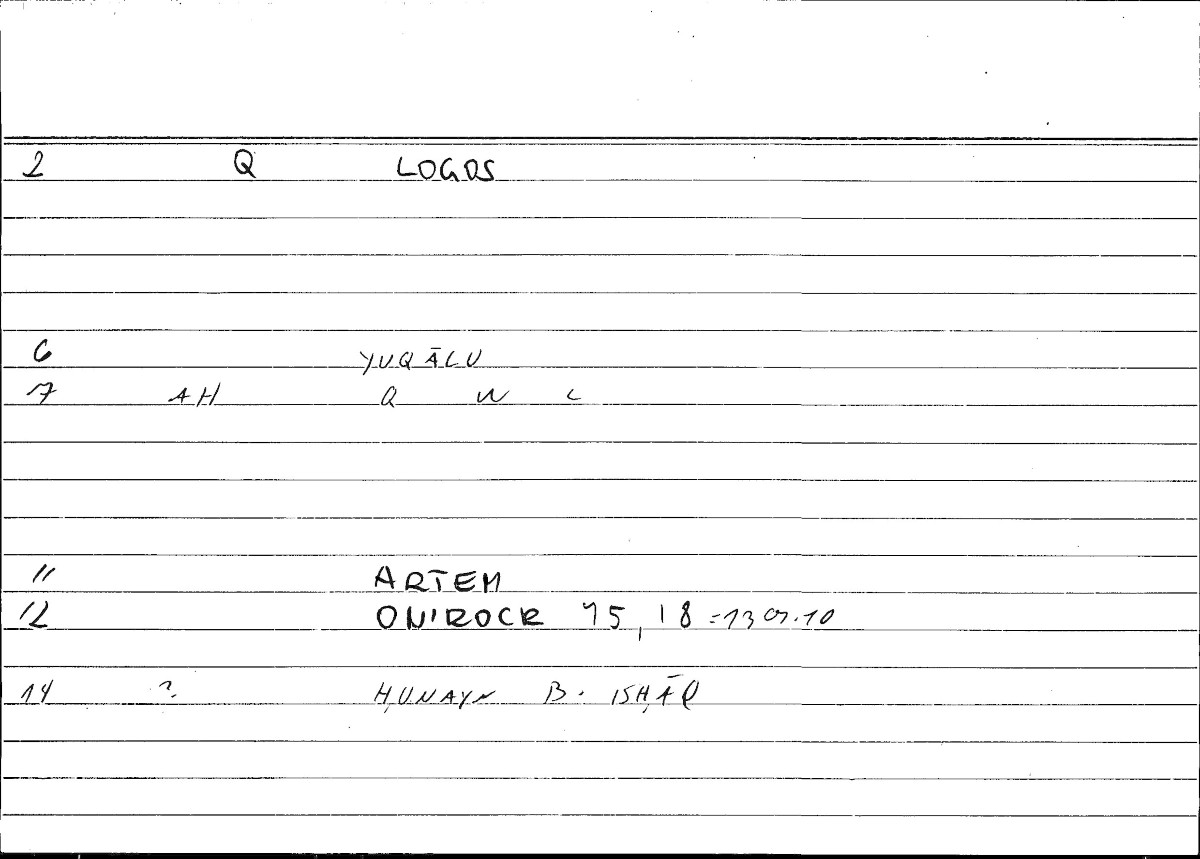 2 Q LOGOS
6 YUQĀLU
7 AH Q W L
11 ARTEM
12 ONIROCR 15,18
14 ? ḤUNAYN B. ISḤĀQ